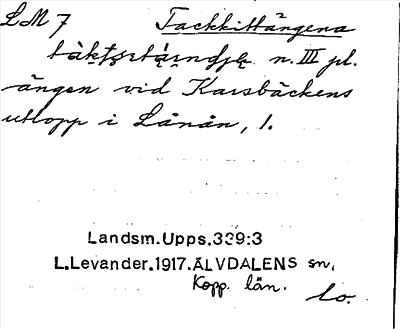 LM 7 Tackkittängena
n. III pl.
ängen vid Karsbäckens
utlopp i Lånån, 1.
Landsm.Upps.339:3
L.Levander.1917.ÄLVDALENS sn,
Kopp. län.
lo.